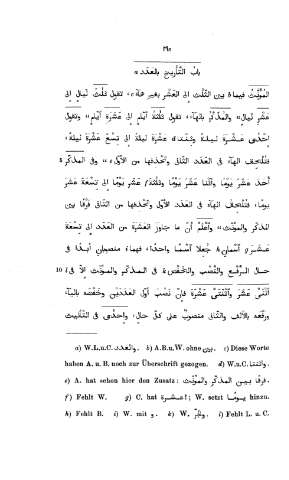 ٣٨٥
باب التأريخ بالعدد
المؤنّث فيما بين الثلث الى العشر بغير هاء، تقول ثلث ليال الى
عشر ليال والمذكّر بالهاء، تقول ثلثة أيّام الى عشرة أيّام
احدى عشرة ليلة الى تسع عشرة ليلة،
العدد الثانى وتحذفها من الأوّل وفى المذكّر
أحد عشر يومًا، واثنا عشر يومًا وثلثة عشر يومًا الى تسعة عشر
يومًا، الهاء فى العدد الأوّل وتحذفها من الثانى فرقًا بين
المذكّر والمؤنّث واعلم أنّ ما جاوز العشرة من العدد الى تسعة
عشر اسمان جُعلا اسمًا واحدًا، فهما منصوبان أبدًا فى
حال الرفع والنصب والخفض فى المذكّر والمؤنّث الّا فى 10
اثنى عشر واثنتى عشرة فانّ نصب أوّل العددين وخفضه بالياء،
ورفعه بالألف والثانى منصوب على كلّ حال، واحدى فى التأنيث
a) W. L. u. C. والعدد. b) A. B. u. W. ohne بين. c) Diese Worte
haben A. u. B. noch zur Überschrift gezogen. d) W. u. C.
e) A. hat schon hier den Zusatz: فرقا بين المذكر والمؤنث.
f) Fehlt W. g) C. hat عشرة!; W. setzt يوما hinzu.
h) Fehlt B. i) W. mit و. k) W. l) Fehlt L. u. C.